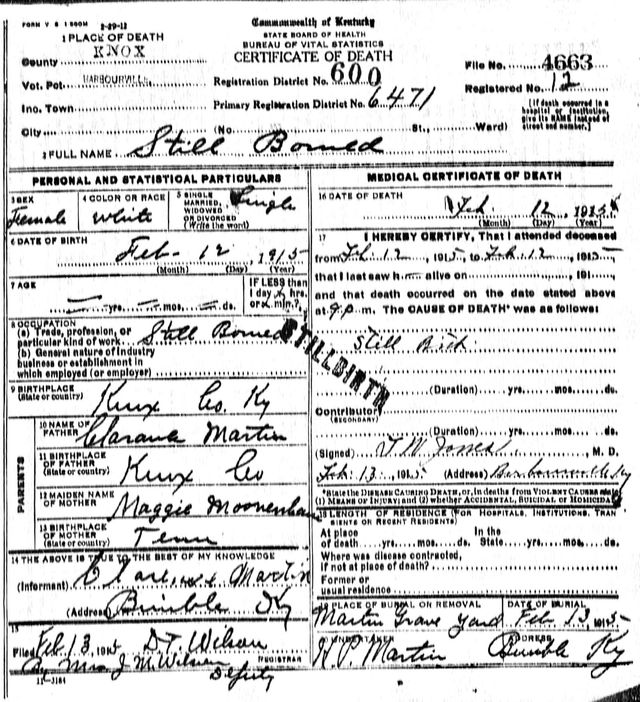 FORM V S 1 500M 2-29-12
Commonwealth of Kentucky
STATE BOARD OF HEALTH
BUREAU OF VITAL STATISTICS
CERTIFICATE OF DEATH
1 PLACE OF DEATH
County KNOX
Vot. Pct. HARBOURVILLE
Inc. Town
City (No. St., Ward)
Registration District No. 600
Primary Registration District No. 6471
File No. 4663
Registered No. 12
[If death occurred in a hospital or institution, give its NAME instead of street and number.]
2 FULL NAME Still Borned
PERSONAL AND STATISTICAL PARTICULARS
3 SEX Female
4 COLOR OR RACE White
5 SINGLE, MARRIED, WIDOWED OR DIVORCED (Write the word) Single
6 DATE OF BIRTH Feb 12, 1915
(Month) (Day) (Year)
7 AGE
yrs. mos. ds.
IF LESS than 1 day, hrs. or min.?
8 OCCUPATION
(a) Trade, profession, or particular kind of work Still Borned
(b) General nature of industry business or establishment in which employed (or employer)
9 BIRTHPLACE (State or country) Knox Co. Ky
PARENTS
10 NAME OF FATHER Martin
11 BIRTHPLACE OF FATHER (State or country) Knox Co
12 MAIDEN NAME OF MOTHER Maggie
13 BIRTHPLACE OF MOTHER (State or country) Tenn
14 THE ABOVE IS TRUE TO THE BEST OF MY KNOWLEDGE
(Informant) Clarence Martin
(Address) Bimble Ky
15
Filed Feb 13, 1915 D.T. Wilson
REGISTRAR
By Mrs J M Wilson Deputy
11-3184
MEDICAL CERTIFICATE OF DEATH
16 DATE OF DEATH Feb. 12, 1915
(Month) (Day) (Year)
17 I HEREBY CERTIFY, That I attended deceased
from Feb. 12, 1915, to Feb. 12, 1915
that I last saw h alive on , 191
and that death occurred on the date stated above
at 9 p. m. The CAUSE OF DEATH* was as follows:
Still Birth
STILLBIRTH
(Duration) yrs. mos. ds.
Contributory (SECONDARY)
(Duration) yrs. mos. ds.
(Signed) Jones, M. D.
Feb. 13, 1915 (Address) Barbourville Ky
*State the DISEASE CAUSING DEATH, or, in deaths from VIOLENT CAUSES state
(1) MEANS OF INJURY; and (2) whether ACCIDENTAL, SUICIDAL OR HOMICIDAL
18 LENGTH OF RESIDENCE (FOR HOSPITALS, INSTITUTIONS, TRANSIENTS OR RECENT RESIDENTS)
At place of death yrs. mos. ds. In the State yrs. mos. ds.
Where was disease contracted, if not at place of death?
Former or usual residence
19 PLACE OF BURIAL OR REMOVAL Martin Grave Yard
DATE OF BURIAL Feb 13, 1915
20 UNDERTAKER Martin
ADDRESS Bimble Ky